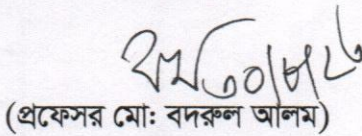 (প্রফেসর মোঃ বদরুল আলম)